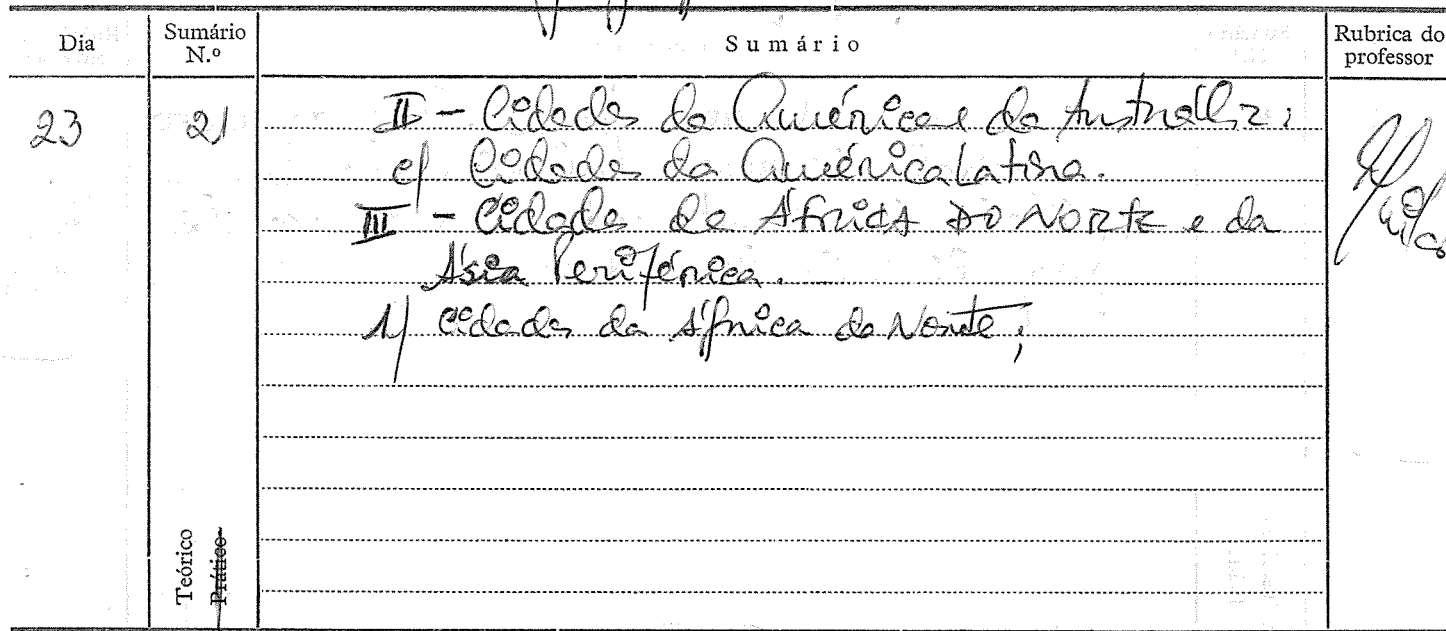 Dia Sumário N.º Sumário Rubrica do professor
23 21 II - Cidades da América e da Austrália:
c) Cidades da América Latina.
III - Cidades da ÁfricA DO NORTE e da
Ásia Periférica.
1) Cidades da África do Norte;
Teórico
Prático